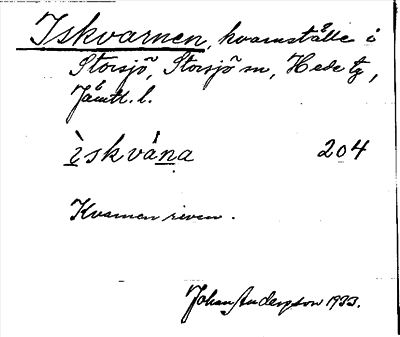 Iskvarnen, kvarnställe i
Storsjö, Storsjö sn, Hede tg,
Jämtl. l.
ìskvá̀na 204
Kvarnen riven.
Johan Anderpson 1933.